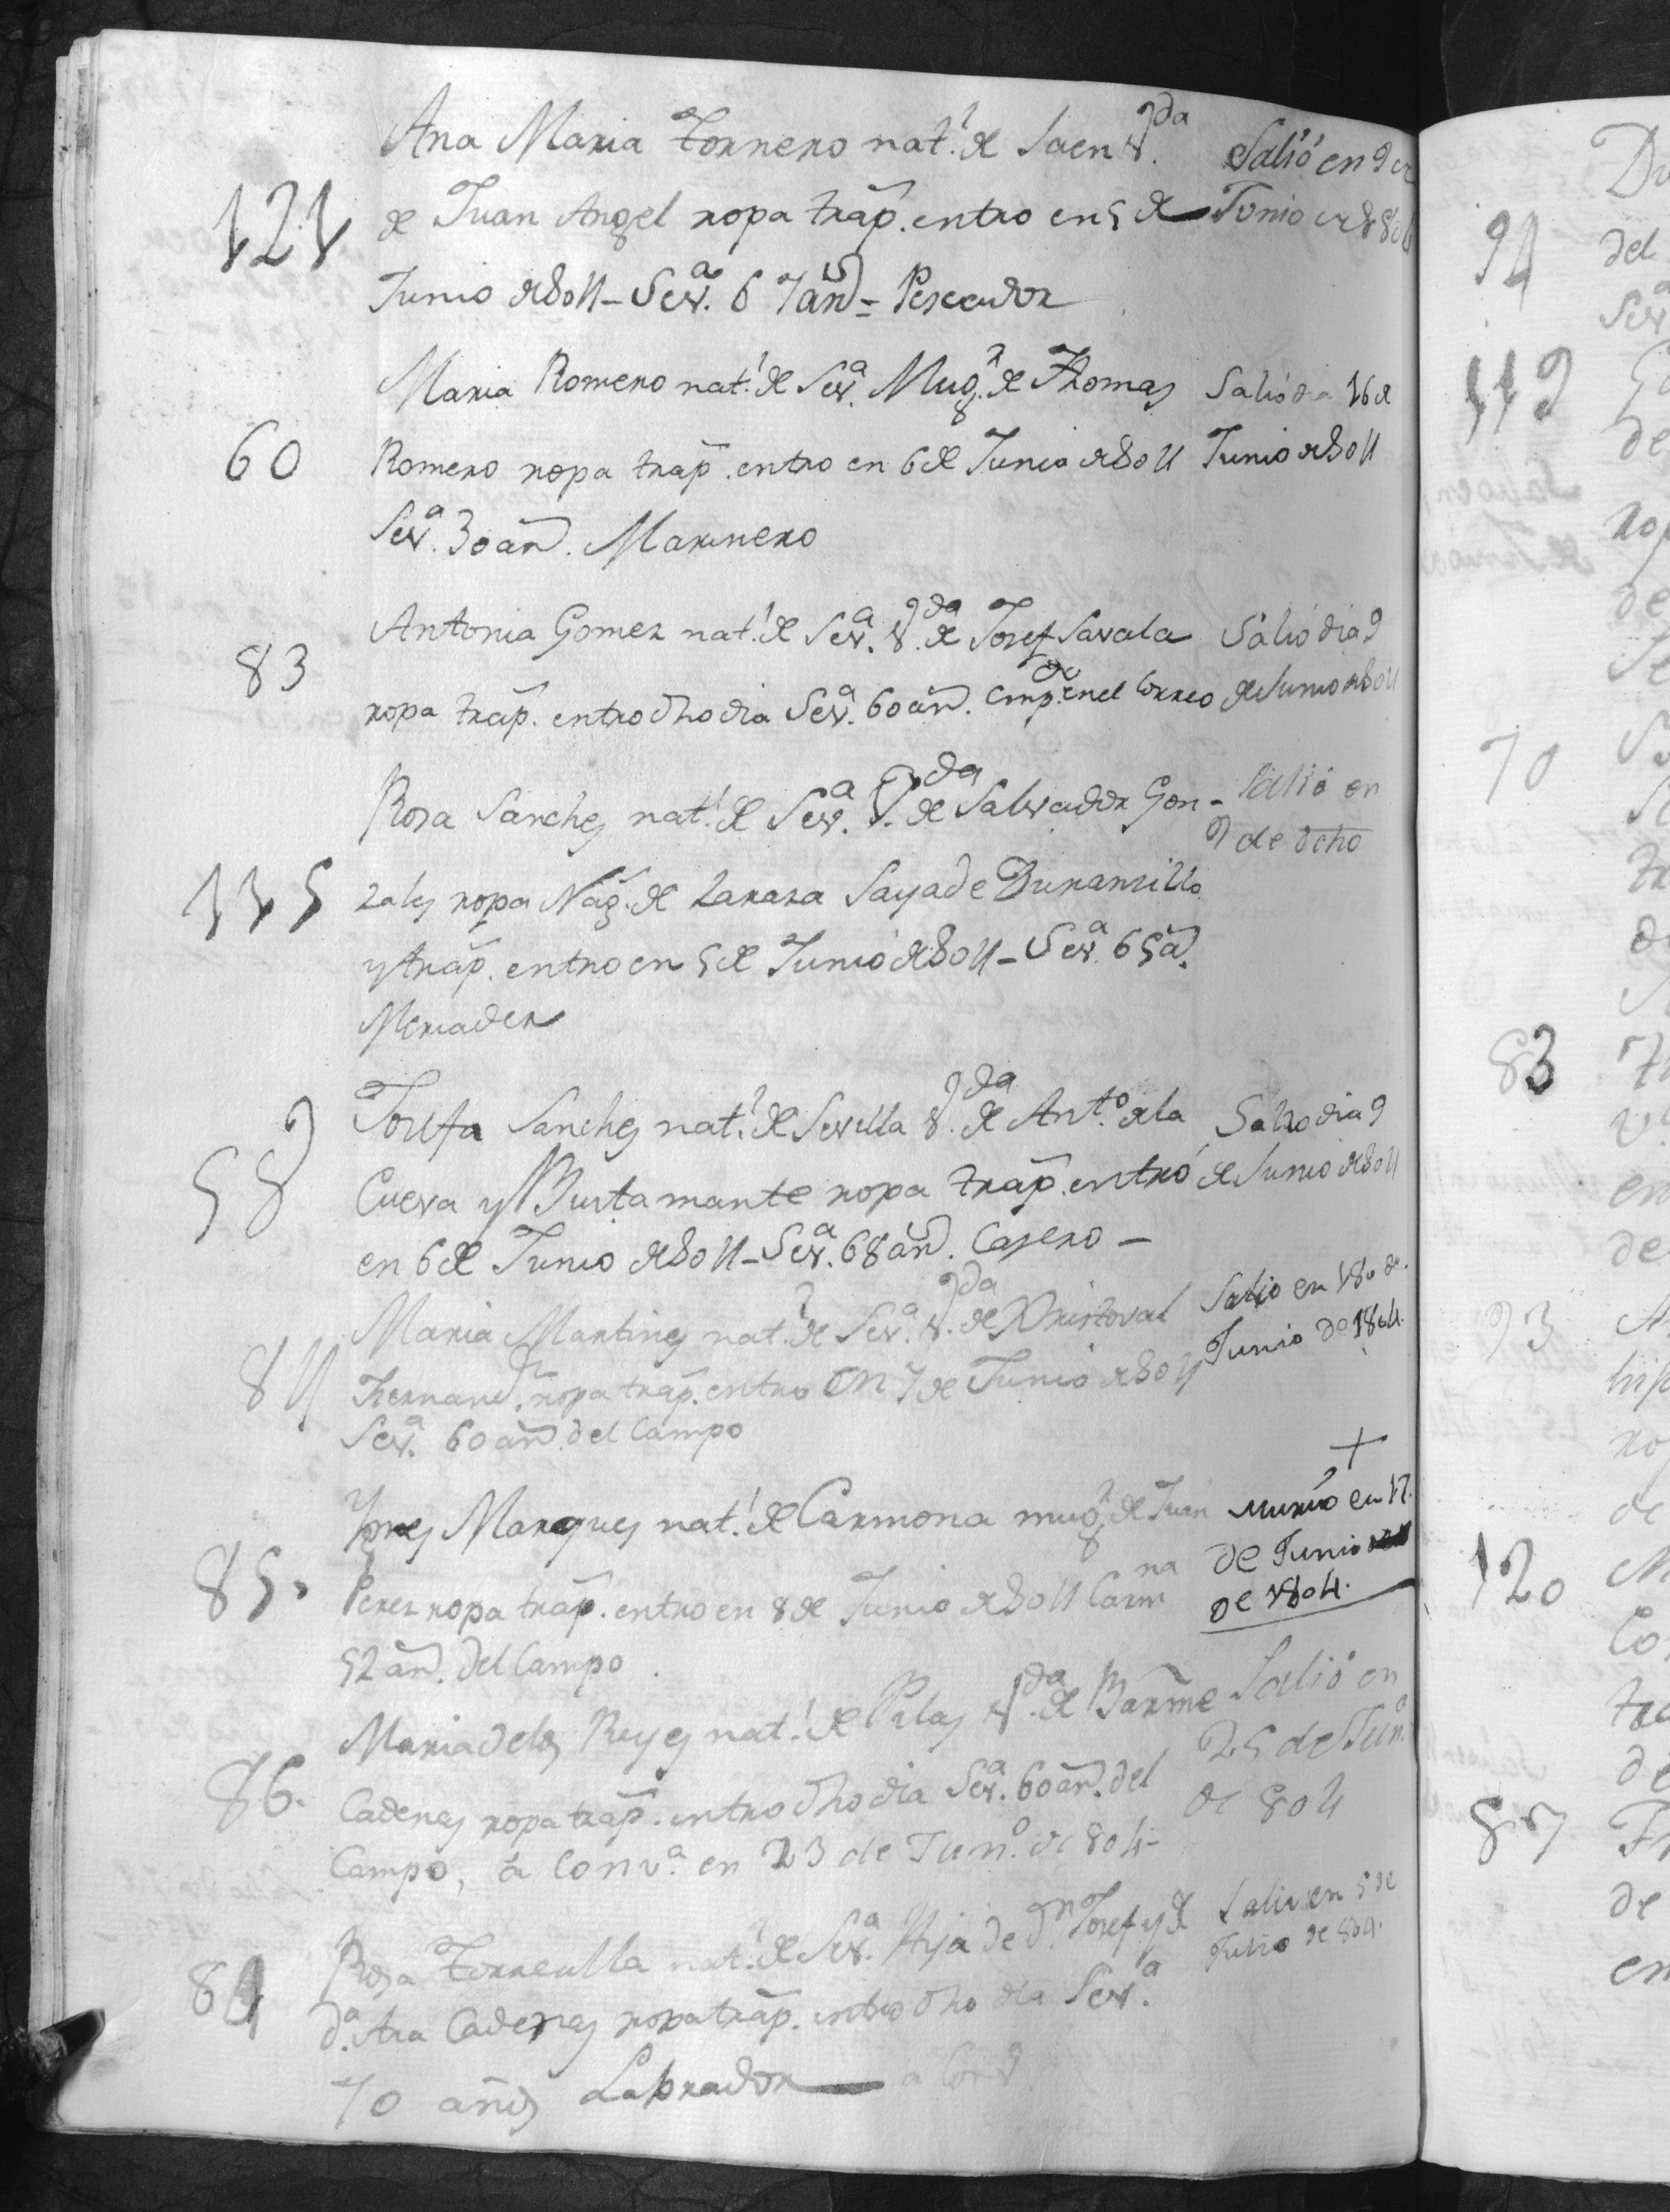 Ana Maria Tornero nat.l de Jaen V.da
Salió en 9 de
121
de Juan Angel ropa trap. entro en 5 de
Junio de 804
Junio de 804 - Sev.a 67 añ.s = Pescador
Maria Romero nat.l de Sev.a Mug.r de Thomas
Salió dia 16 de
60
Romero ropa trap. entro en 6 de Junio de 804
Junio de 804
Sev.a 30 añ. Marinero
Antonia Gomez nat.l de Sev.a V.da de Josef Savala
Salió dia 9
83
ropa trap. entro dho dia Sev.a 60 añ. emp.do en el Correo
de Junio de 804
Rosa Sanches nat.l de Sev.a V.da de Salvador Gon-
Salió en
9 de dcho
115
zales ropa Nag. de Zaraza Saya de Duransillo
y trap. entro en 5 de Junio de 804 - Sev.a 65 a.
Meriader
Josefa Sanches nat.l de Sevilla V.da de Ant.o de la
Salio dia 9
58
Cueva y Bustamante ropa trap. entró
de Junio de 804
en 6 de Junio de 804 - Sev.a 68 añ.s Casero -
Maria Martines nat.l de Sev.a V.da de Xpristoval
Salio en 18 de
84
Fernand.z ropa trap. entro en 7 de Junio de 804
Junio de 1804.
Sev.a 60 añ. del Campo
+
Ynes Marques nat.l de Carmona mug.r de Juan
murio en 17.
85.
Perez ropa trap. entro en 8 de Junio de 804 Carm.na
de Junio
de 1804.
52 añ. del Campo.
Maria de los Reyes nat.l de Pilas V.da de Barme
Salió en
86.
Cadenas ropa trap. entro dho dia Sev.a 60 añ. del
25 de Jun.o
Campo, á Conv.a en 23 de Jun.o de 804-
de 804
Rosa Torreulla nat.l de Sev.a Hija de D.n Josef y de
Salio en 5 de
84
D.a Ana Cadenas ropa trap. entro dho dia Sev.a
Julio de 804.
70 años Labrador a Conv
94
del
119
70
83
93
120
87